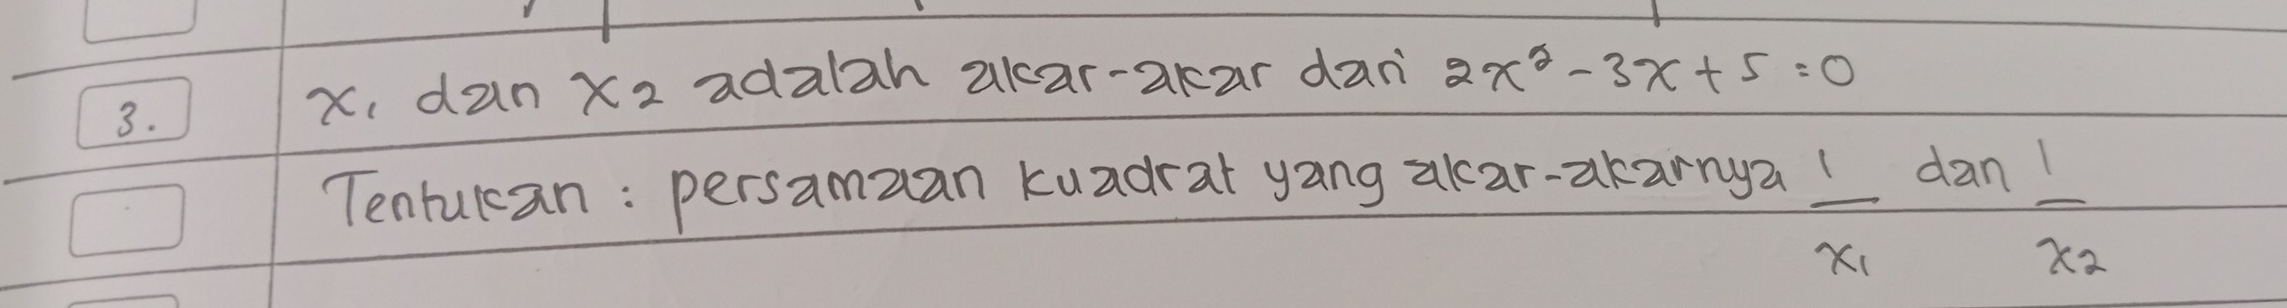 3. x₁ dan x₂ adalah akar-akar dari 2x² - 3x + 5 = 0
Tentukan : persamaan kuadrat yang akar-akarnya 1/x₁ dan 1/x₂